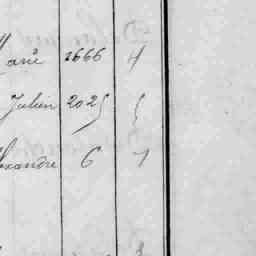 arie 1666 4
Julien 2025
exandre 6 7
3